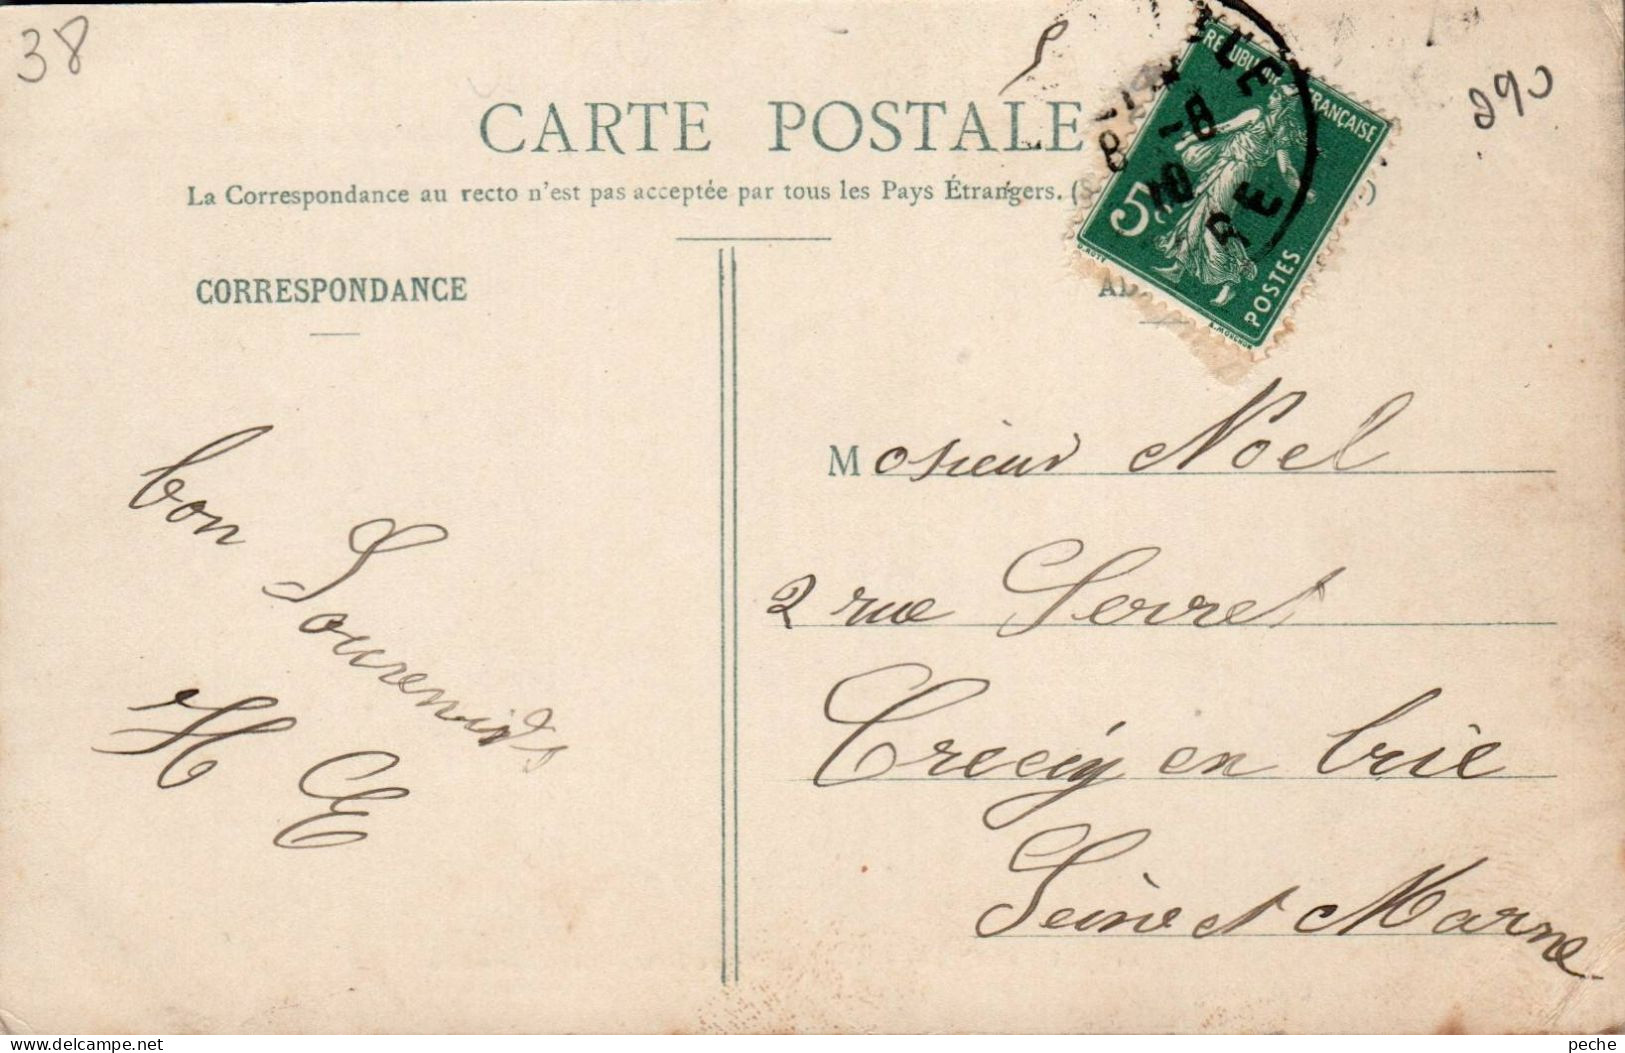 38
290
CARTE POSTALE
La Correspondance au recto n'est pas acceptée par tous les Pays Étrangers. (S
CORRESPONDANCE
REPUBLIQUE FRANÇAISE
5
POSTES
-8
8
10
LE
RE
bon
Souvenirs
H
E
Mosieur Noel
2 rue Serret
Crecÿ en brie
Seine et Marne
delcampe.net
peche